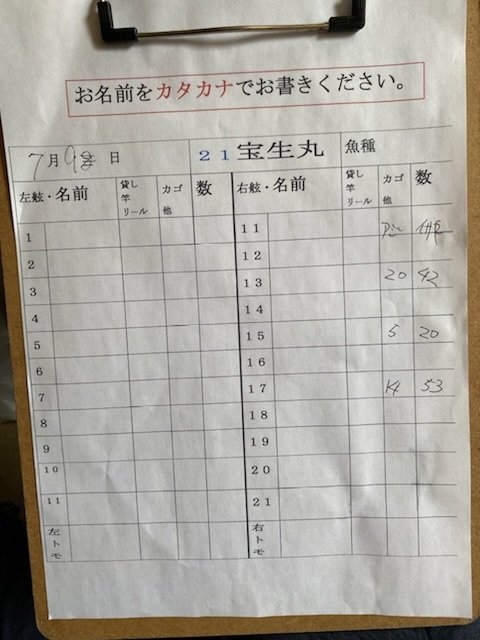 お名前をカタカナでお書きください。
7月9 日 21宝生丸 魚種
左舷・名前 貸し竿リール カゴ他 数 右舷・名前 貸し竿リール カゴ他 数
1 11
2 12
3 13 20 42
4 14
5 15 5 20
6 16
7 17 14 53
8 18
9 19
10 20
11 21
左トモ 右トモ